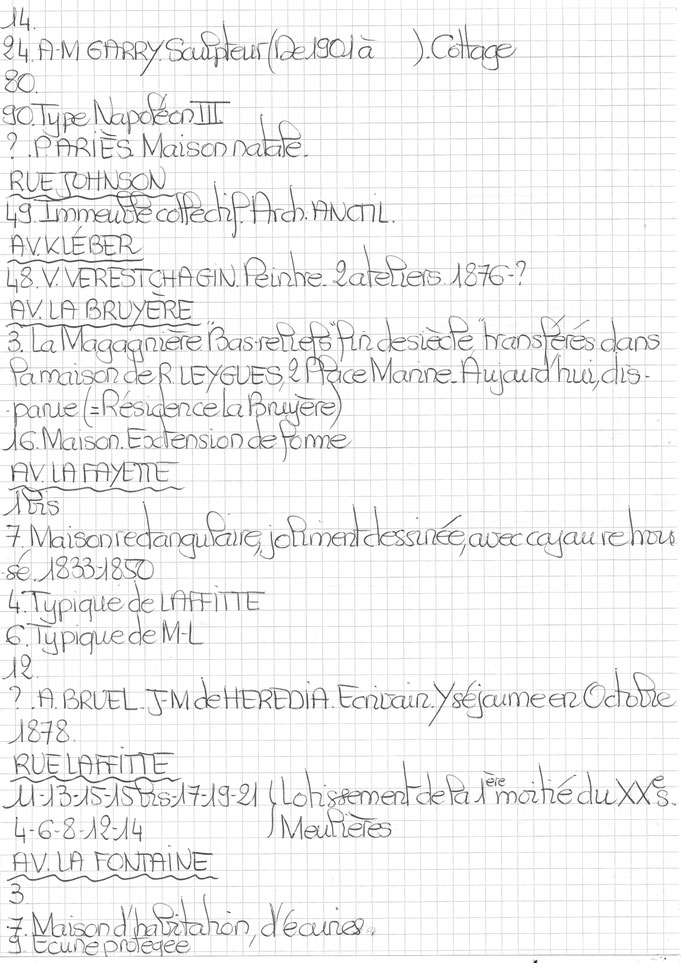 14.
24. A-M GARRY. Sculpteur (De 1901 à    ). Cottage
80.
90. Type Napoléon III
? . P. ARIÈS. Maison natale.
RUE JOHNSON
49. Immeuble collectif. Arch. ANCTIL.
AV. KLÉBER
48. V. VERESTCHAGIN. Peintre. 2 ateliers. 1876-?
AV. LA BRUYÈRE
3. La Magagnière "Bas-reliefs" "fin de siècle" transférés dans
la maison de R. LEYGUES, 2 Place Marine. Aujourd'hui, dis-
-parue (= Résidence La Bruyère)
16. Maison. Extension de forme
AV. LA FAYETTE
1 bis
7. Maison rectangulaire, joliment dessinée, avec coyau retrous
sé. 1833-1850
4. Typique de LAFFITTE
6. Typique de M-L
12.
? . A. BRUEL. J-M de HEREDIA. Ecrivain. Y séjourne en Octobre
1878.
RUE LAFFITTE
11-13-15-15 bis-17-19-21 ( Lotissement de la 1ère moitié du XXe s.
4-6-8-12-14 ) Meulières
AV. LA FONTAINE
3
7. Maison d'habitation, d'écuries.
9. Ecurie protégée